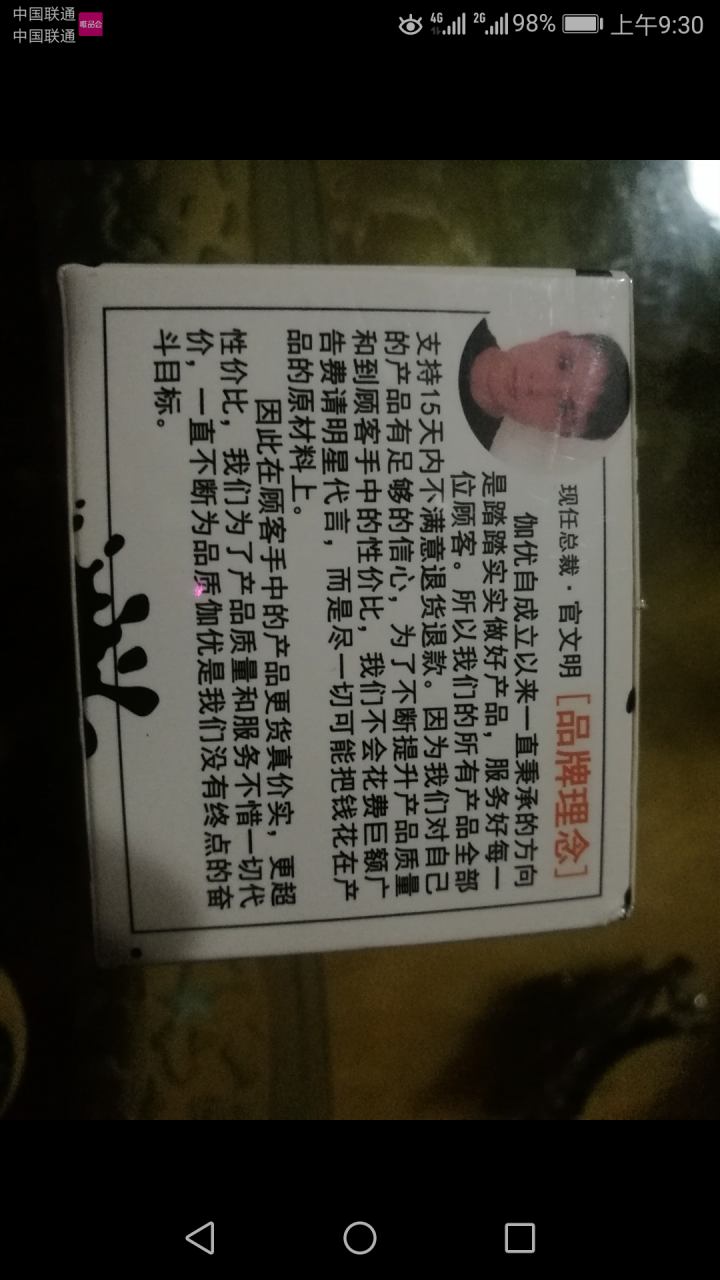 中国联通
中国联通
唯品会
4G
2G
98%
上午9:30
现任总裁·官文明
[品牌理念]
伽优自成立以来一直秉承的方向
是踏踏实实做好产品，服务好每一
位顾客。所以我们的所有产品全部
支持15天内不满意退货退款。因为我们对自己
的产品有足够的信心，为了不断提升产品质量
和到顾客手中的性价比，我们不会花费巨额广
告费请明星代言，而是尽一切可能把钱花在产
品的原材料上。
因此在顾客手中的产品更货真价实，更超
性价比，我们为了产品质量和服务不惜一切代
价，一直不断为品质伽优是我们没有终点的奋
斗目标。